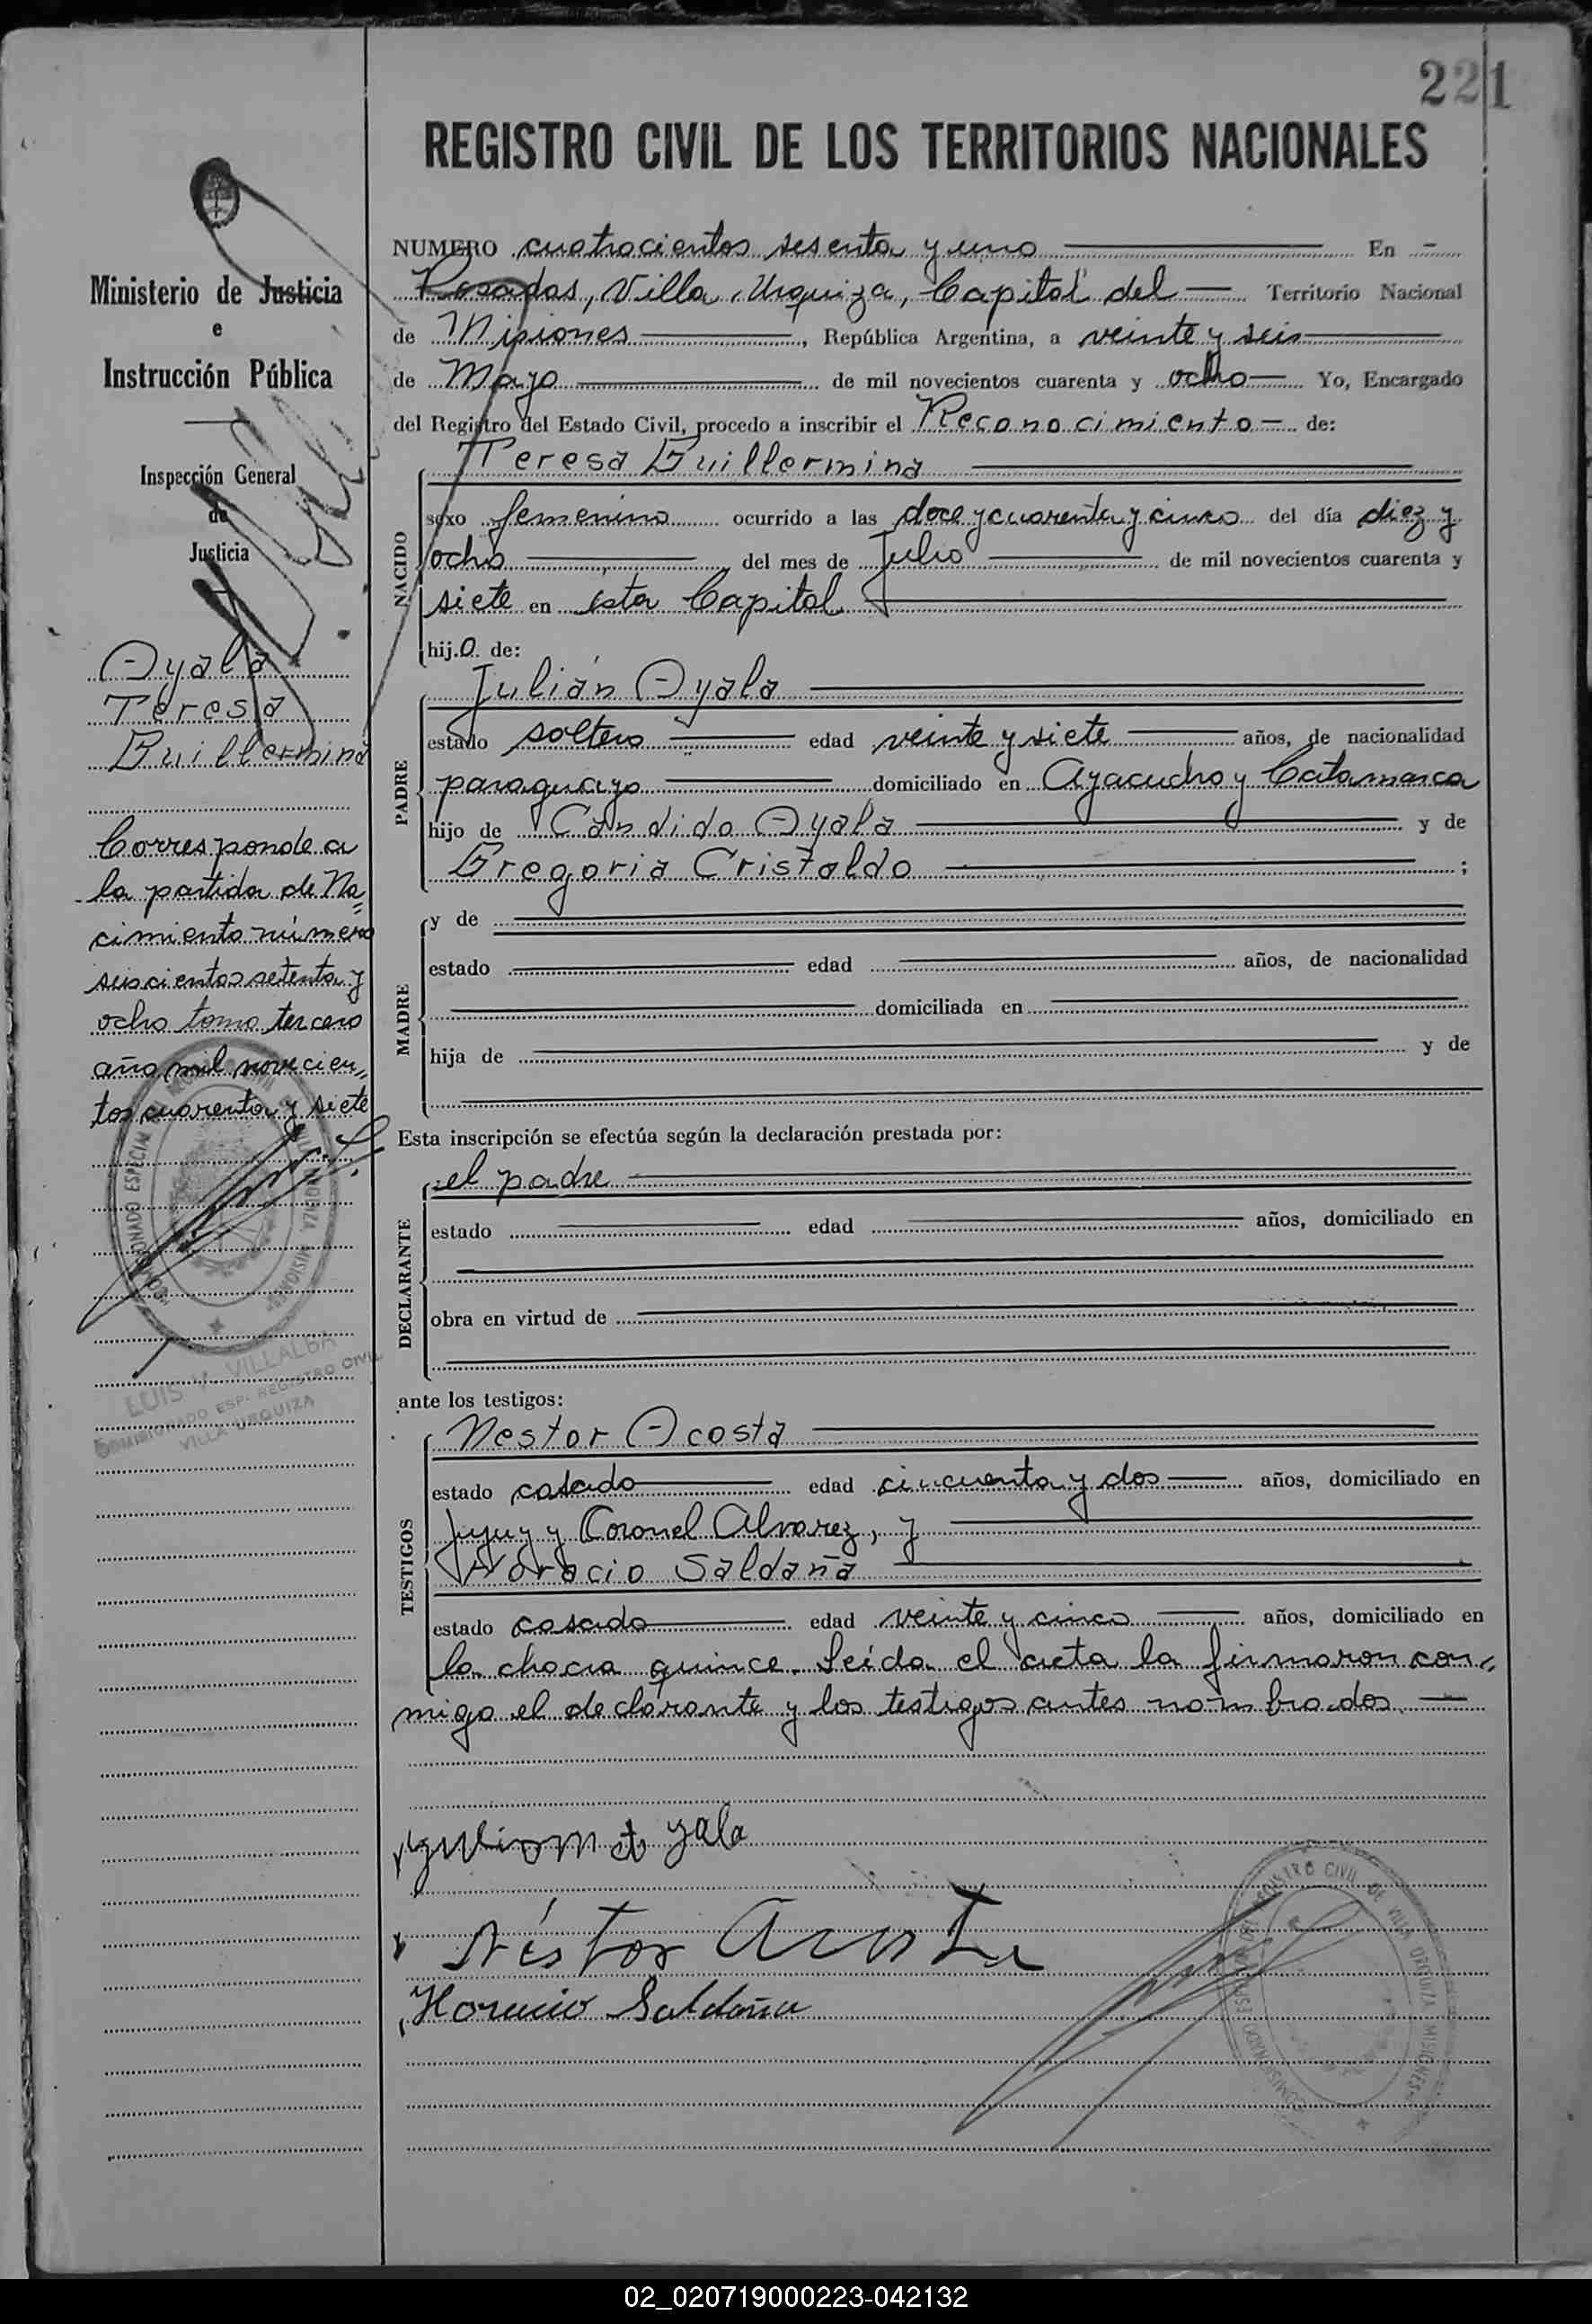 221
REGISTRO CIVIL DE LOS TERRITORIOS NACIONALES
Ministerio de Justicia
e
Instrucción Pública
Inspección General
de
Justicia
Ayala
Teresa
Guillermina
Corresponde a
la partida de Na=
cimiento número
seiscientos setenta y
ocho tomo tercero
año mil novecien„
tos cuarenta y siete
COMISIONADO ESPECIAL DEL REGISTRO CIVIL DE VILLA URQUIZA MISIONES
LUIS V. VILLALBA
COMISIONADO ESP. REGISTRO CIVIL
VILLA URQUIZA
NUMERO cuatrocientos sesenta y uno En
Posadas, Villa Urquiza, Capital del Territorio Nacional
de Misiones, República Argentina, a veinte y seis
de Mayo de mil novecientos cuarenta y ocho Yo, Encargado
del Registro del Estado Civil, procedo a inscribir el Reconocimiento de:
NACIDO
Teresa Guillermina
sexo femenino ocurrido a las doce y cuarenta y cinco del día diez y
ocho del mes de Julio de mil novecientos cuarenta y
siete en ésta Capital
hij.a de:
PADRE
Julián Ayala
estado soltero edad veinte y siete años, de nacionalidad
paraguayo domiciliado en Ayacucho y Catamarca
hijo de Cándido Ayala y de
Gregoria Cristaldo ;
MADRE
y de
estado edad años, de nacionalidad
domiciliada en
hija de y de
Esta inscripción se efectúa según la declaración prestada por:
DECLARANTE
el padre
estado edad años, domiciliado en
obra en virtud de
ante los testigos:
TESTIGOS
Nestor Acosta
estado casado edad cincuenta y dos años, domiciliado en
Jujuy y Coronel Alvarez, y
Horacio Saldaña
estado casado edad veinte y cinco años, domiciliado en
la chacra quince. Leída el acta la firmaron con„
migo el declarante y los testigos antes nombrados.
Néstor Acosta
Horacio Saldaña
COMISIONADO ESPECIAL DEL REGISTRO CIVIL DE VILLA URQUIZA MISIONES
02_020719000223-042132